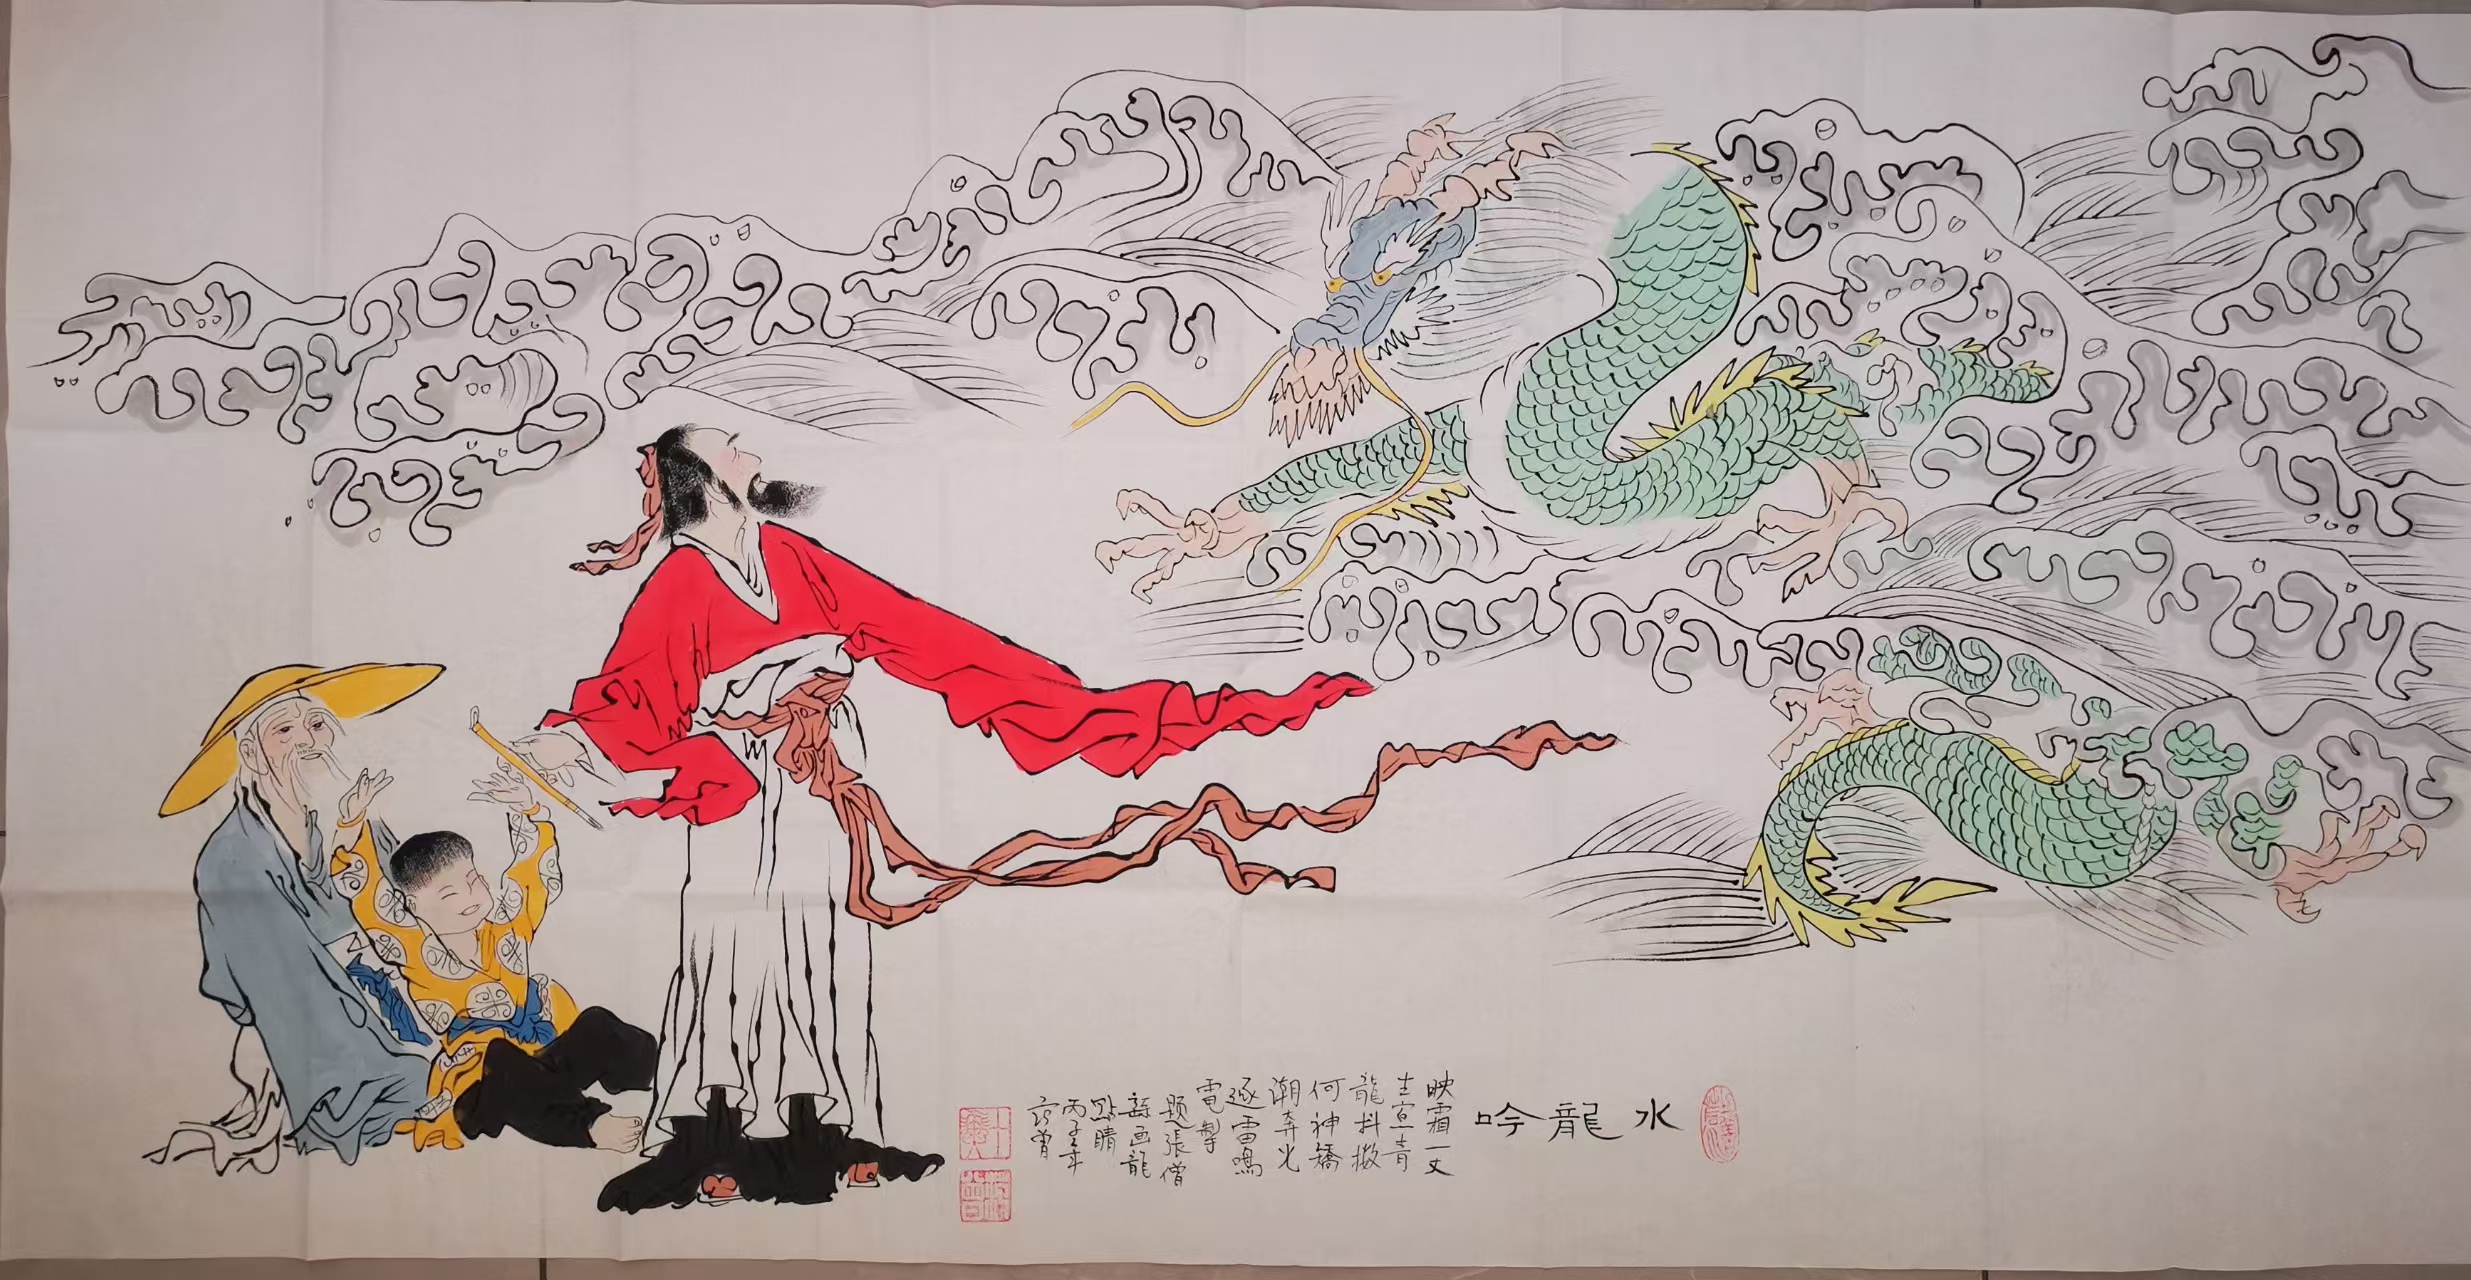 水龍吟
映霜一丈
生宣青
龍抖擻
何神矯
潮奔光
逐雷鳴
電掣
题張僧
繇画龍
點睛
丙子年
范曾